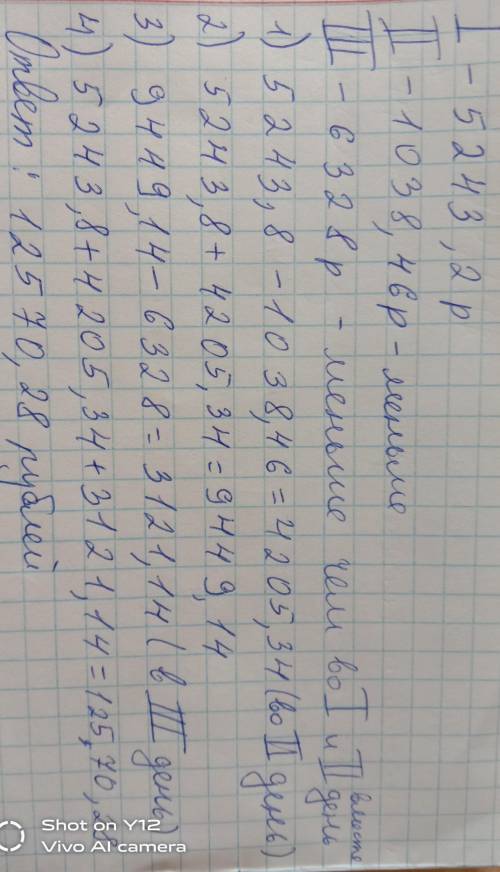 I - 5243,2р
II - 1038,46р - меньше
III - 6328р - меньше чем во I и II день вместе
1) 5243,8 - 1038,46 = 4205,34 (во II день)
2) 5243,8 + 4205,34 = 9449,14
3) 9449,14 - 6328 = 3121,14 (в III день)
4) 5243,8 + 4205,34 + 3121,14 = 125,70,28
Ответ: 12570,28 рублей
Shot on Y12
Vivo AI camera